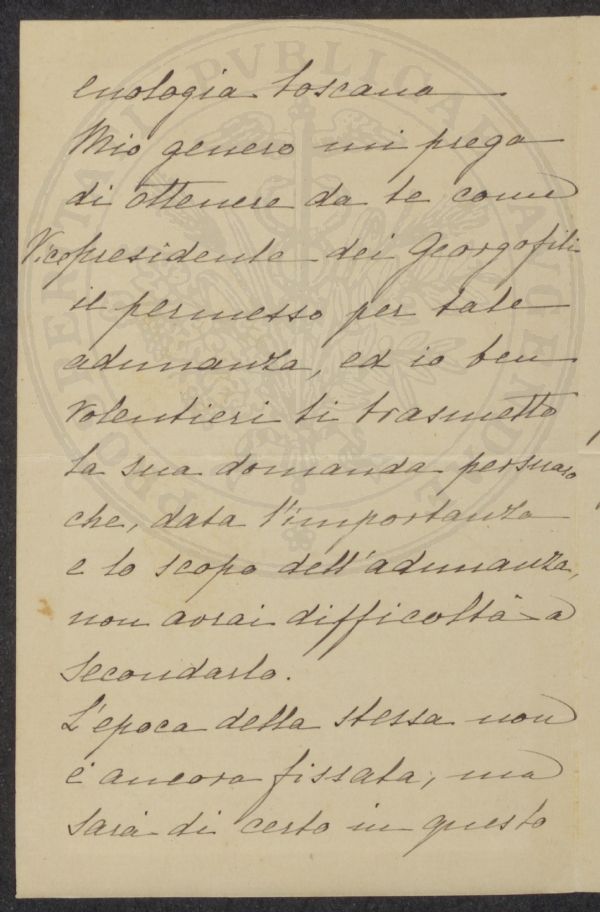 enologia toscana
Mio genero mi prega
di ottenere da te come
Vicepresidente dei Georgofili
il permesso per tale
adunanza, ed io ben
volentieri ti trasmetto
la sua domanda persuaso
che, data l'importanza
e lo scopo dell'adunanza,
non avrai difficoltà a
secondarlo.
L'epoca della stessa non
è ancora fissata, ma
sarà di certo in questo